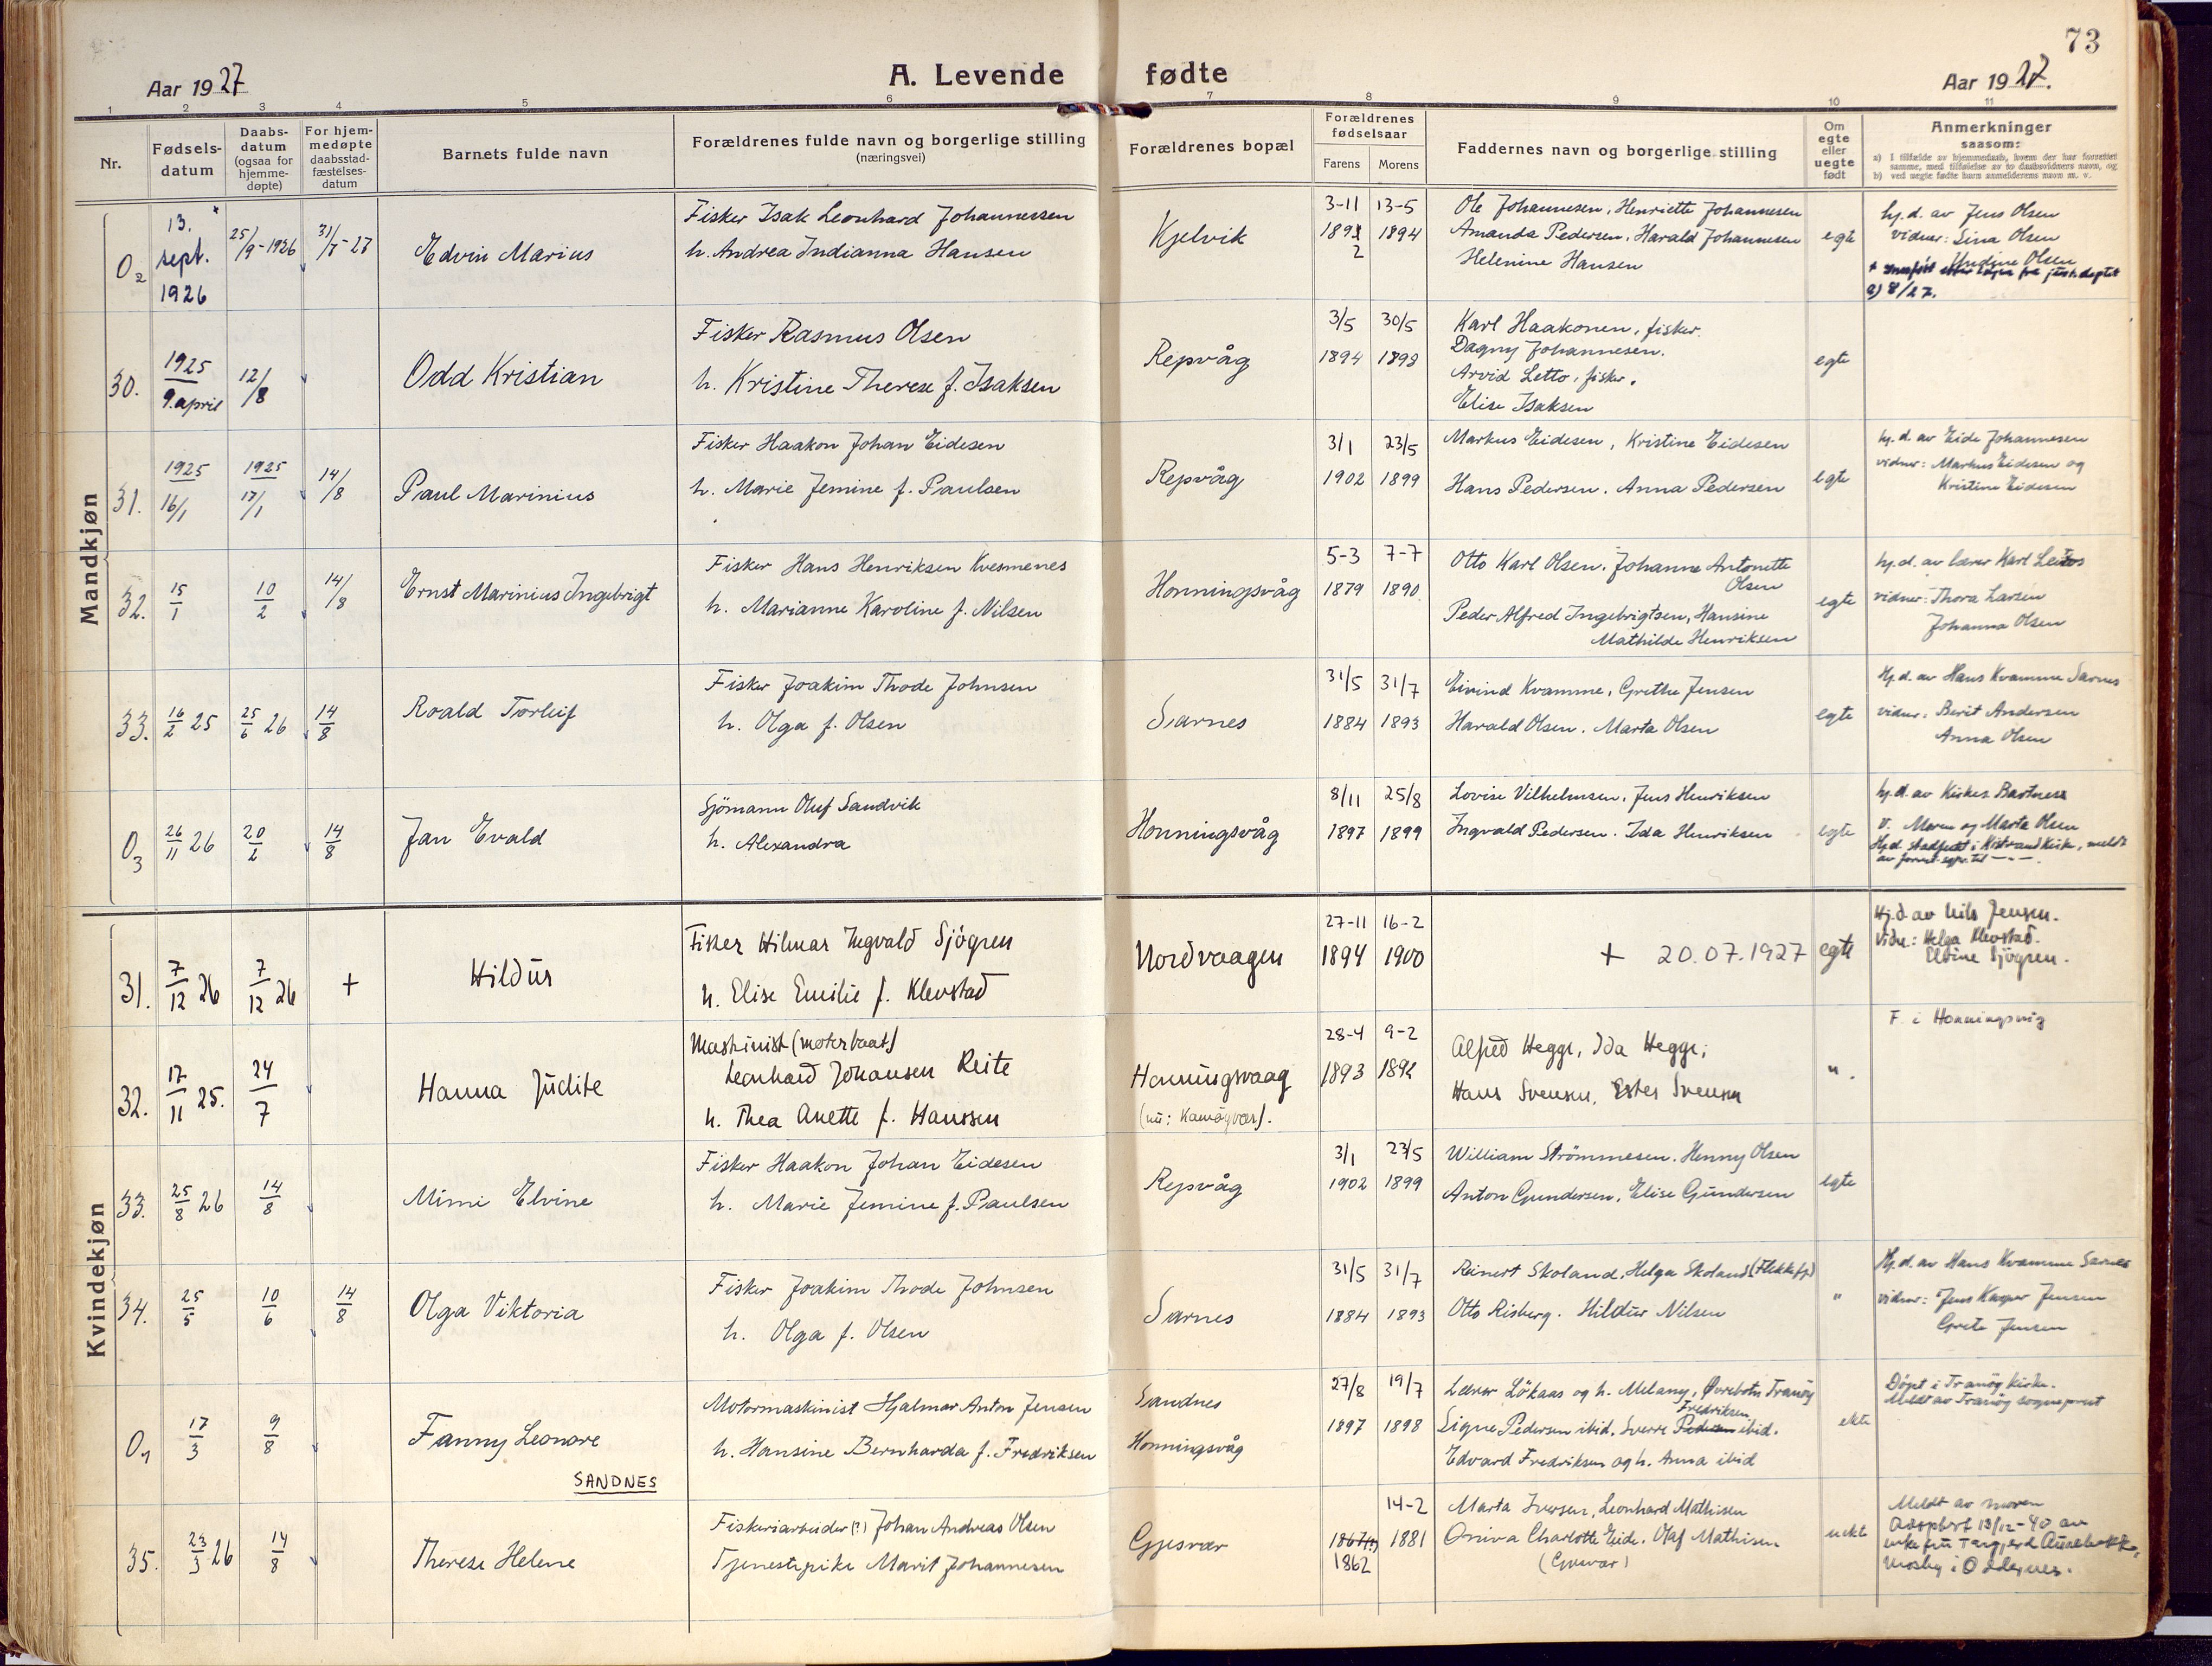 73
Aar 1927
A. Levende fødte
Aar 1927.
1 2 3 4 5 6 7 8 9 10 11
Nr.
Fødsels-
datum
Daabs-
datum
(ogsaa for
hjemme-
døpte)
For hjem-
medøpte
daabsstad-
fæstelses-
datum
Barnets fulde navn
Forældrenes fulde navn og borgerlige stilling
(næringsvei)
Forældrenes bopæl
Forældrenes
fødselsaar
Farens Morens
Faddernes navn og borgerlige stilling
Om
egte
eller
uegte
født
Anmerkninger
saasom:
a) I tilfælde av hjemmedaab, hvem der har forrettet
samme, med tilføielse av to daabsvidners navn, og
b) ved uegte fødte barn anmelderens navn m. v.
Mandkjøn
O2
13. +
sept.
1926
25/9-1926
31/7-27
Edvin Marius
Fisker Isak Leonhard Johannessen
h. Andrea Indianna Hansen
Kjelvik
3-11 13-5
1891 1894
2
Ole Johannesen, Henriette Johannesen
Amanda Pedersen, Harald Johannesen
Helenine Hansen
egte
hj.d. av Jens Olsen
vidner: Lina Olsen
Undine Olsen
8/27.
30.
1925
9. april
12/8
Odd Kristian
Fisker Rasmus Olsen
h. Kristine Therese f. Isaksen
Repvåg
3/5 30/5
1894 1898
Karl Haakonen, fisker.
Dagny Johannesen.
Arvid Letto, fisker.
Elise Isaksen
egte
31.
1925
16/1
1925
17/1
14/8
Paul Marinius
Fisker Haakon Johan Eidesen
h. Marie Jemine f. Paulsen
Repvåg
3/1 23/5
1902 1899
Markus Eidesen, Kristine Eidesen
Hans Pedersen. Anna Pedersen
egte
hj.d. av Eide Johannesen
vidner: Markus Eidesen og
Kristine Eidesen
32.
15/1
10/2
14/8
Ernst Marinius Ingebrigt
Fisker Hans Henriksen Kvesmenes
h. Marianne Karoline f. Nilsen
Honningsvåg
5-3 7-7
1879 1890
Otto Karl Olsen. Johanne Antonette
Olsen
Peder Alfred Ingebrigtsen, Hansine
Mathilde Henriksen
egte
hj.d. av lærer Karl
vidner: Thora Larsen
Johanna Olsen
33.
16/2 25
25/6 26
14/8
Roald Torleif
Fisker Joakim Thode Johnsen
h. Olga f. Olsen
Sarnes
31/5 31/7
1884 1893
Eivind Kvamme, Grethe Jensen
Harald Olsen. Marta Olsen
egte
Hj.d. av Hans Kvamme Sarnes
vidner: Berit Andersen
Anna Olsen
O3
26/11 26
20/2
14/8
Jan Evald
Sjömann Oluf Sandvik
h. Alexandra
Honningsvåg
8/11 25/8
1897 1899
Lovise Vilhelmsen, Jens Henriksen
Ingvald Pedersen. Ida Henriksen
egte
hj.d. av Kirkes. Bartness
V. Maren og Marta Olsen
Hj.d. stadfestet i Kistrand Kirke, meldt
Kvindekjøn
31.
7/12 26
7/12 26
+
Hildur
Fisker Hilmar Ingvald Sjögren
h. Elise Emilie f. Klevstad
Nordvaagen
27-11 16-2
1894 1900
+ 20.07.1927
egte
Hj.d av Nils Jensen.
Vidn.: Helga Klevstad.
Eldine Sjögren.
32.
17/11 25.
24/7
Hanna Judite
Maskinist (motorbaat)
Leonhard Johansen Reite
h. Thea Anette f. Hanssen
Honningsvaag
(nu: Kamöyvær).
28-4 9-2
1893 1892
Alfred Hegge, Ida Hegge;
Hans Svensen, Ester Svensen
".
F. i Honningsvåg
33.
25/8 26
14/8
Mimi Elvine
Fisker Haakon Johan Eidesen
h. Marie Jemine f. Paulsen
Repvåg
3/1 23/5
1902 1899
William Strömmesen. Henny Olsen
Anton Gundersen, Elise Gundersen
egte
34.
25/5
10/6
14/8
Olga Viktoria
Fisker Joakim Thode Johnsen
h. Olga f. Olsen
Sarnes
31/5 31/7
1884 1893
Reinert Skoland, Helga Skoland (Flekkefj)
Otto Risberg. Hildur Nilsen
"
Hj.d. av Hans Kvamme Sarnes
vidner: Jens Kasper Jensen
Grete Jensen
O1
17/3
9/8
Fanny Leonore
SANDNES
Motormaskinist Hjalmar Anton Jensen
h. Hansine Bernharda f. Fredriksen
Sandnes
Honningsvåg
27/8 19/7
1897 1898
Lærer Lökaas og h. Melany, Övrebotn Tranöy
Fredriksen
Signe Pedersen ibid, Sverre Pedersen ibid.
Edvard Fredriksen og h. Anna ibid
ekte
Döpt i Tranöy kirke.
Meldt av Tranöy sogneprest
35.
23/3 26
14/8
Therese Helene
Fiskeriarbeider (?) Johan Andreas Olsen
Tjenestepike Marit Johannesen
Gjesvær
14-2
1867(?) 1881
1862
Marta Iversen, Leonhard Mathisen
Oniva Charlotte Eide. Olaf Mathisen
(Gjesvær)
uekt
Meldt av moren
Adoptert 13/12-40 av
enkefru Torgjerd
Mosby i Oddernes.